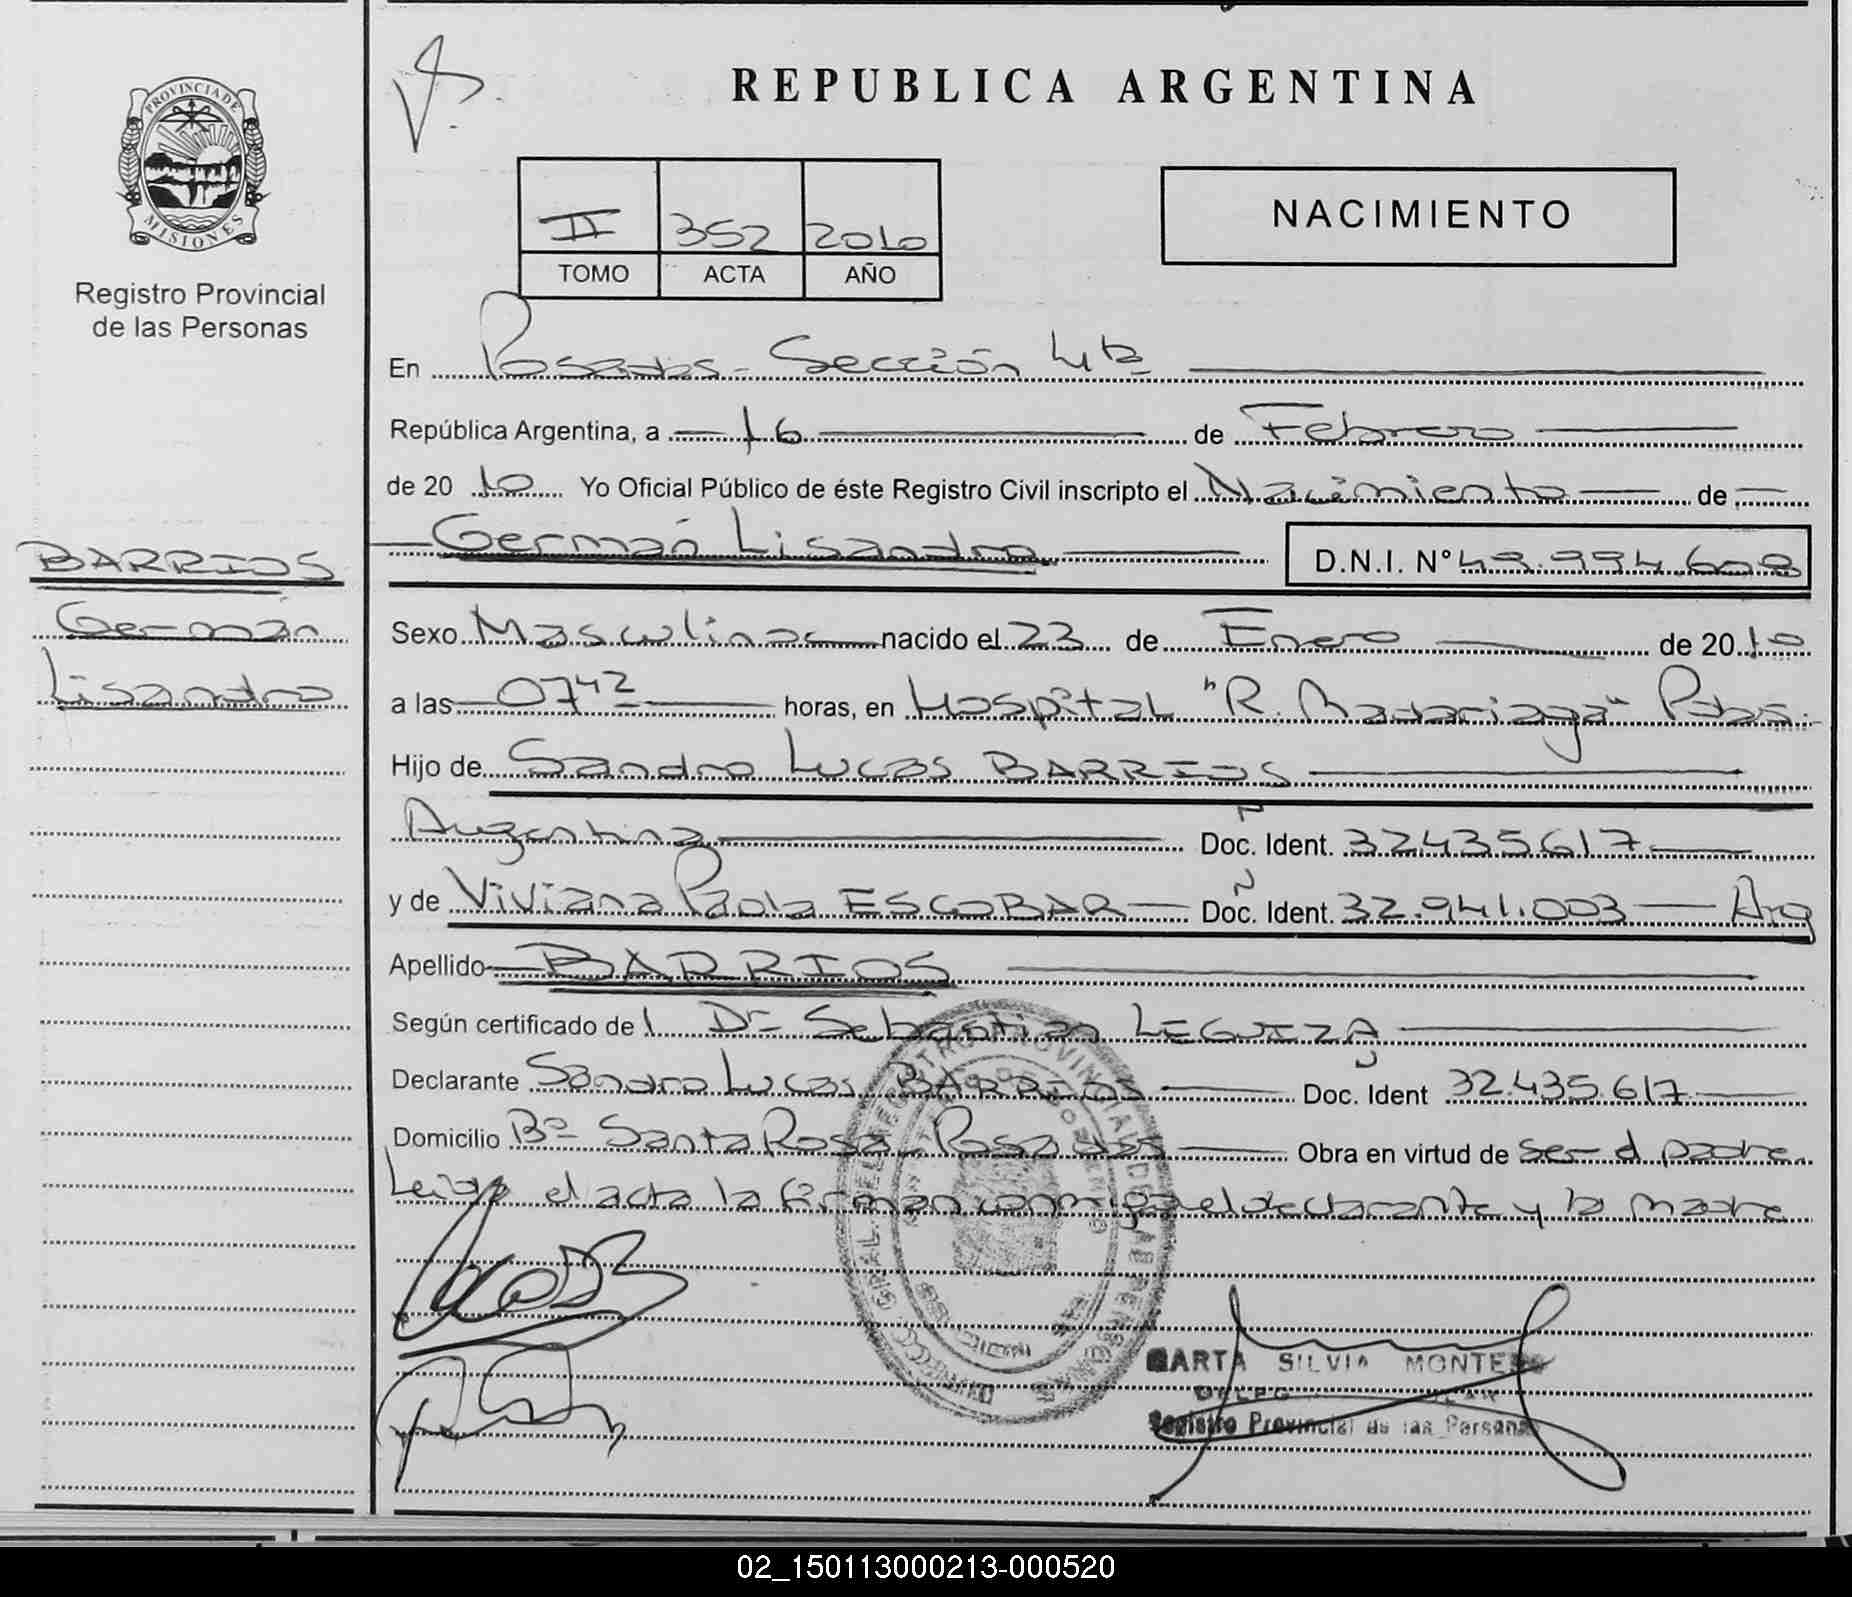 REPUBLICA ARGENTINA
PROVINCIA DE
MISIONES
Registro Provincial
de las Personas
II 352 2010
TOMO ACTA AÑO
NACIMIENTO
En Posadas - Sección 4ta
República Argentina, a 16 de Febrero
de 2010 Yo Oficial Público de éste Registro Civil inscripto el Nacimiento de
Germán Lisandro D.N.I. N° 49.994.608
BARRIOS
Germán
Lisandro
Sexo Masculino nacido el 23 de Enero de 2010
a las 07 42 horas, en Hospital "R. Madariaga" Pdas.
Hijo de Sandro Lucas BARRIOS
Argentina Doc. Ident. 32435617
y de Viviana Paola ESCOBAR Doc. Ident. 32.941.003 Arg
Apellido BARRIOS
Según certificado de l Dr Sebastian
Declarante Sandro Lucas BARRIOS Doc. Ident 32.435.617
Domicilio B° Santa Rosa Posadas Obra en virtud de ser el padre
Leida el acta la firman conmigo el declarante y la madre
MARTA SILVIA MONTE
Registro Provincial de las Persona
02_150113000213-000520